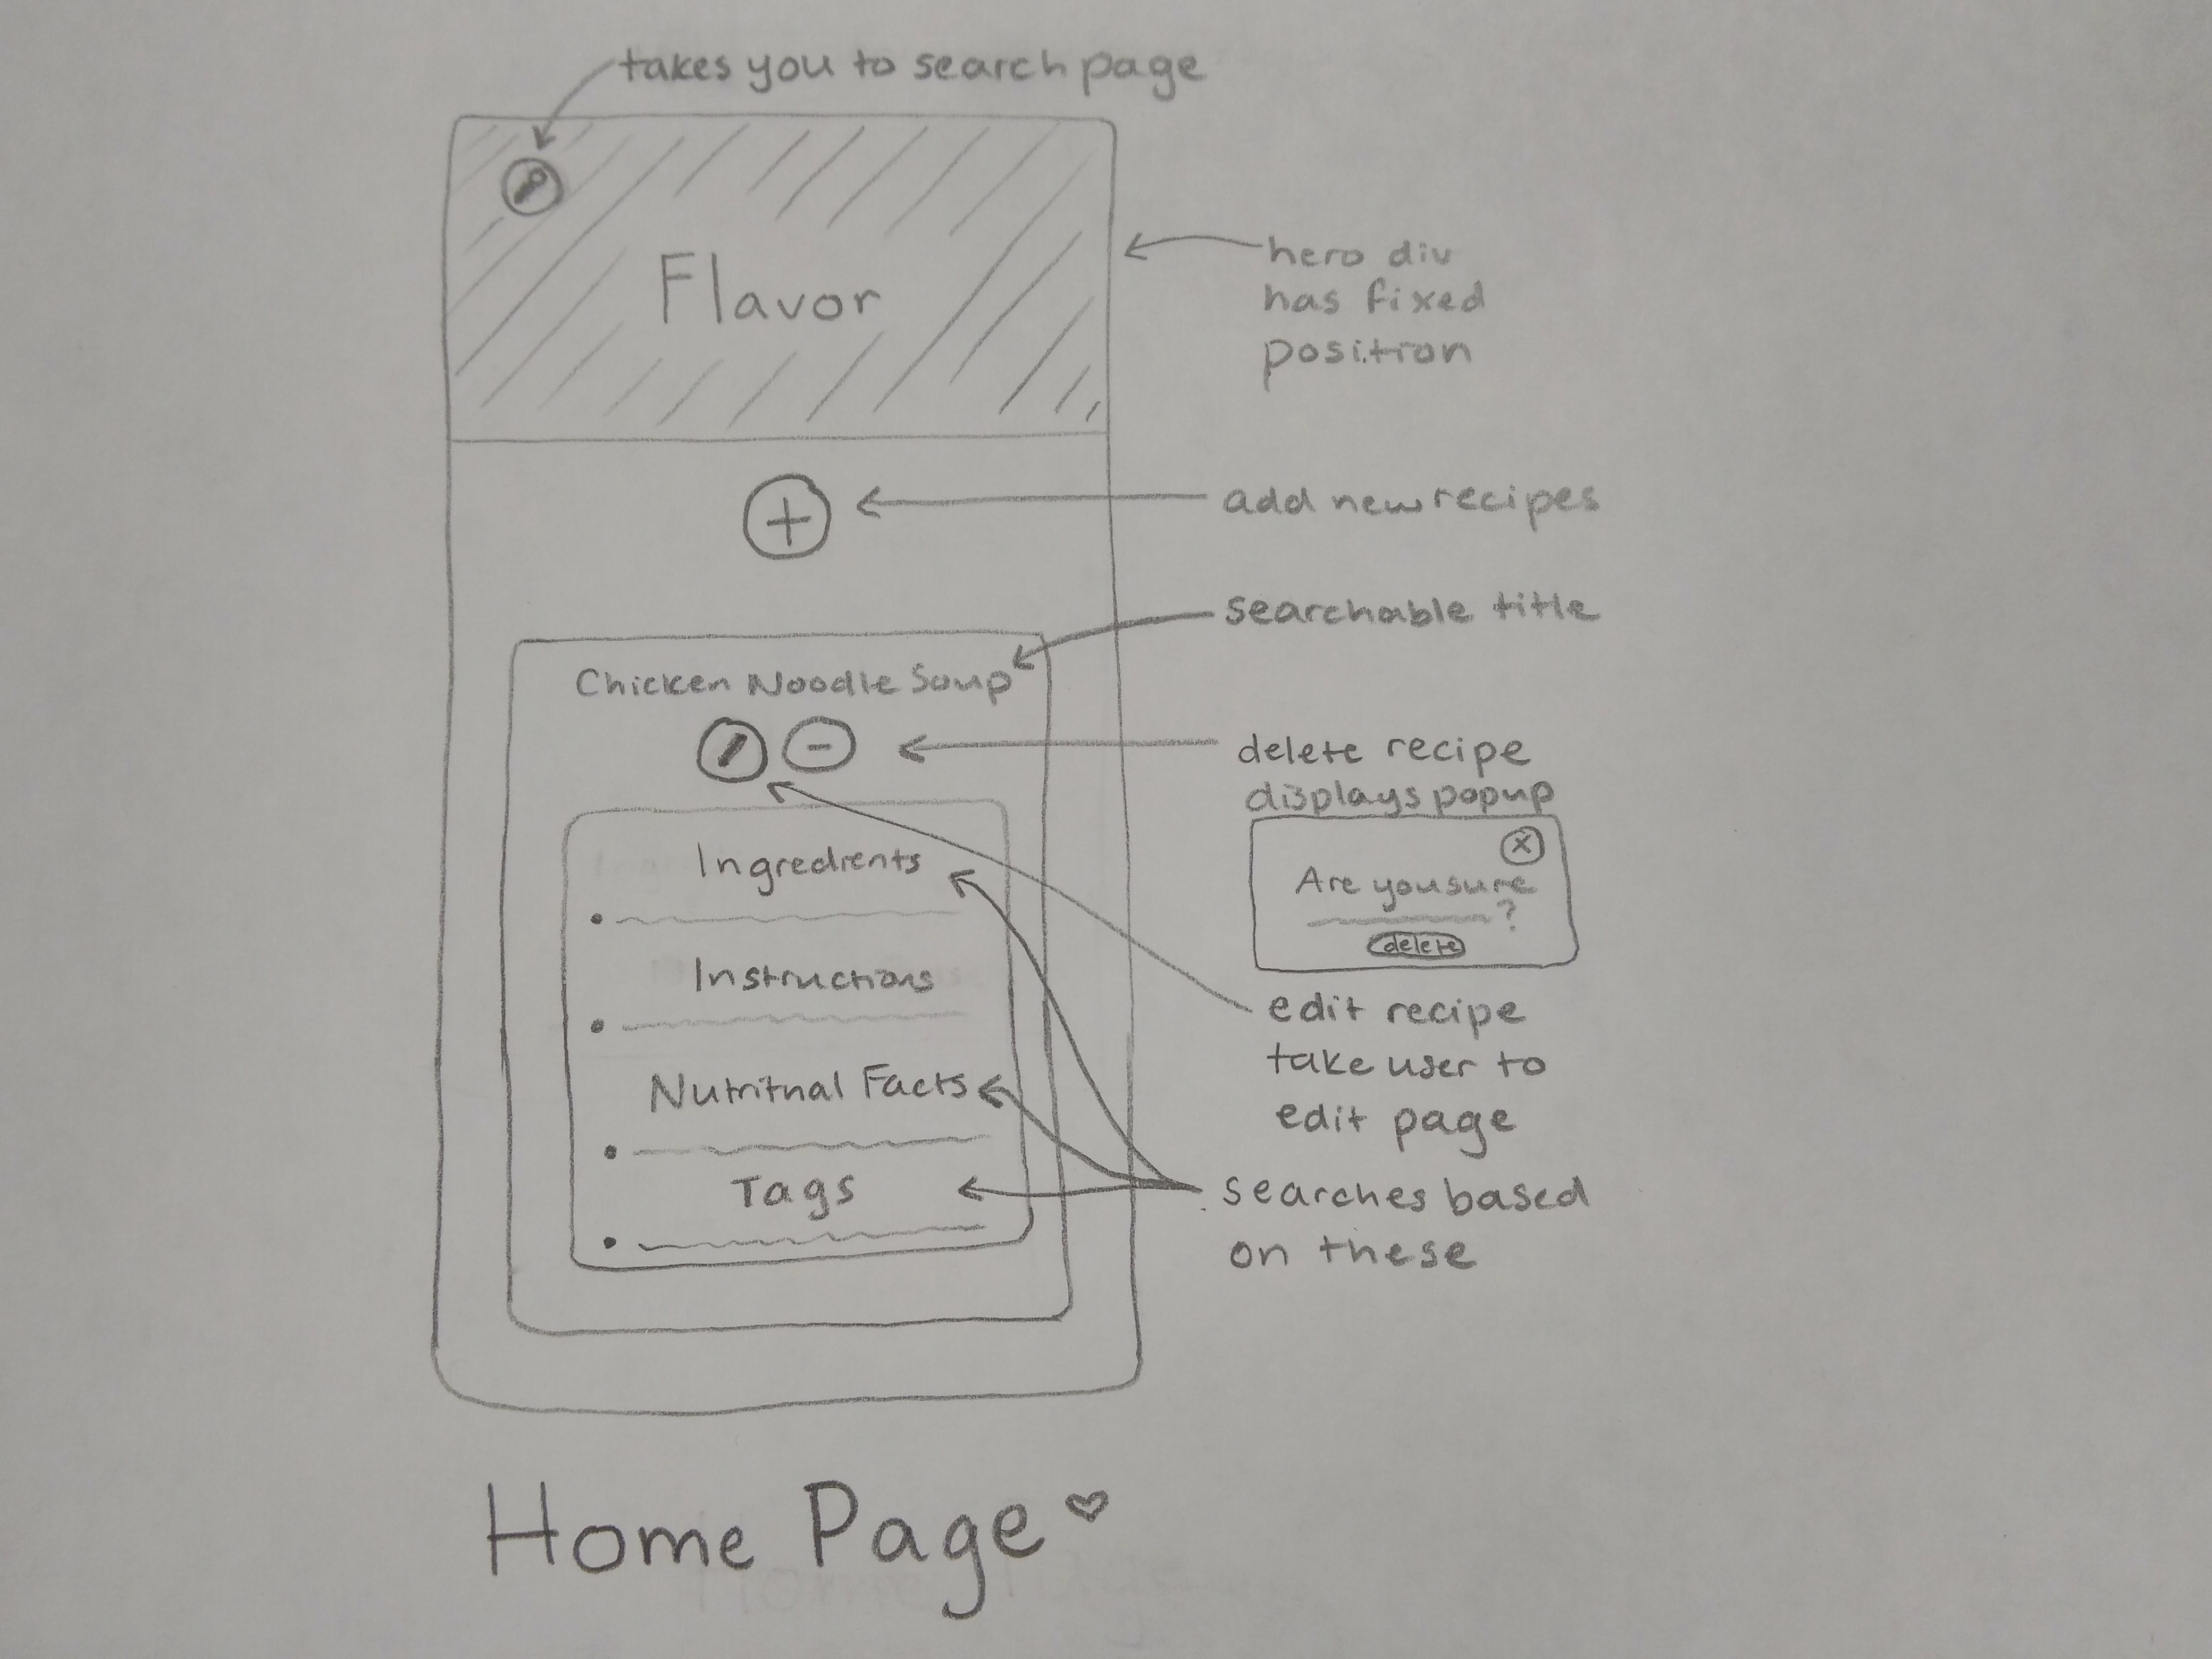 takes you to search page
Flavor
hero div
has fixed
position
add new recipes
searchable title
Chicken Noodle Soup
delete recipe
displays popup
Are you sure
?
delete
Ingredients
Instructions
Nutritnal Facts
Tags
edit recipe
take user to
edit page
searches based
on these
Home Page